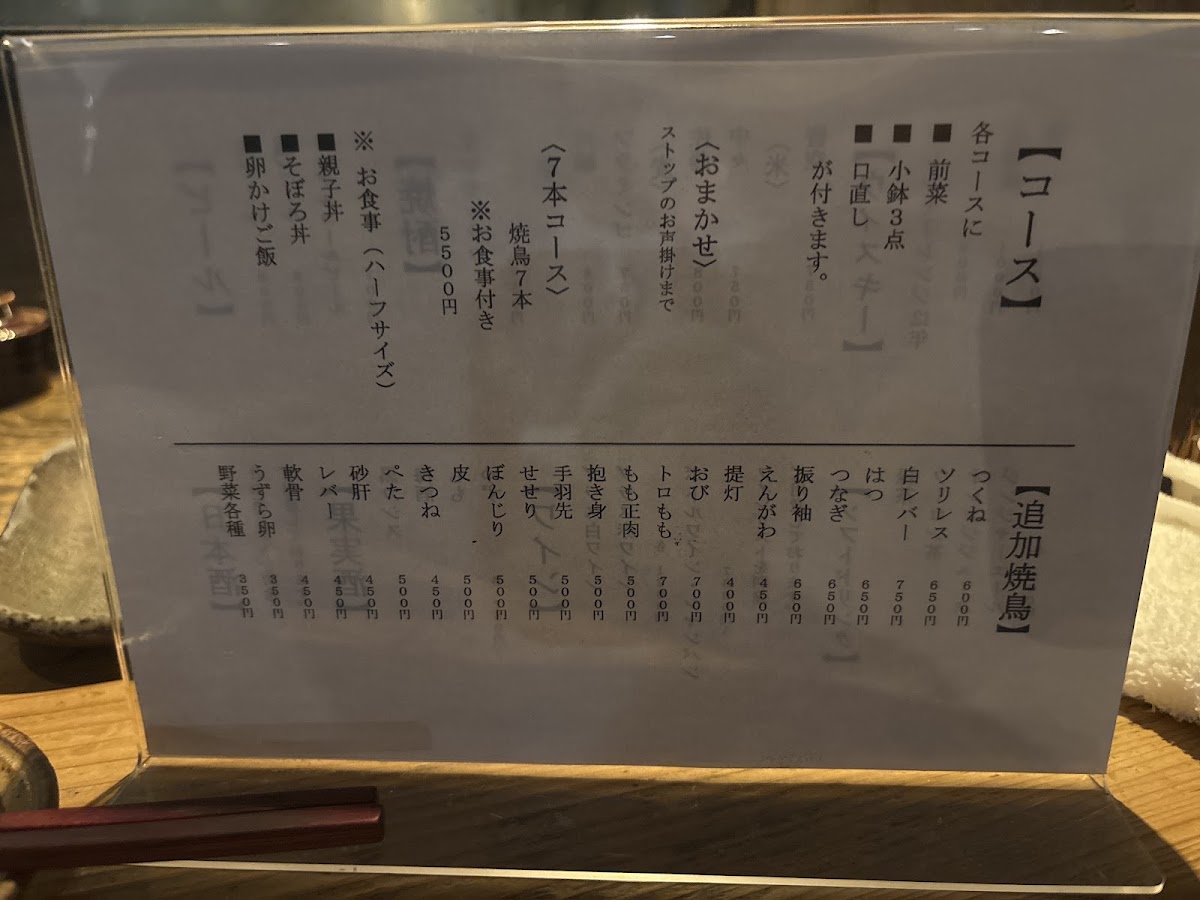 【コース】
各コースに
■ 前菜
■ 小鉢3点
■ 口直し
が付きます。
〈おまかせ〉
ストップのお声掛けまで
〈7本コース〉
焼鳥7本
※お食事付き
5500円
※ お食事（ハーフサイズ）
■親子丼
■そぼろ丼
■卵かけご飯
【追加焼鳥】
つくね 600円
ソリレス 650円
白レバー 750円
はつ 650円
つなぎ 650円
振り袖 650円
えんがわ 450円
提灯 400円
おび 700円
トロもも 700円
もも正肉 500円
抱き身 500円
手羽先 500円
せせり 500円
ぼんじり 500円
皮 500円
きつね 450円
ぺた 500円
砂肝 450円
レバー 450円
軟骨 450円
うずら卵 350円
野菜各種 350円